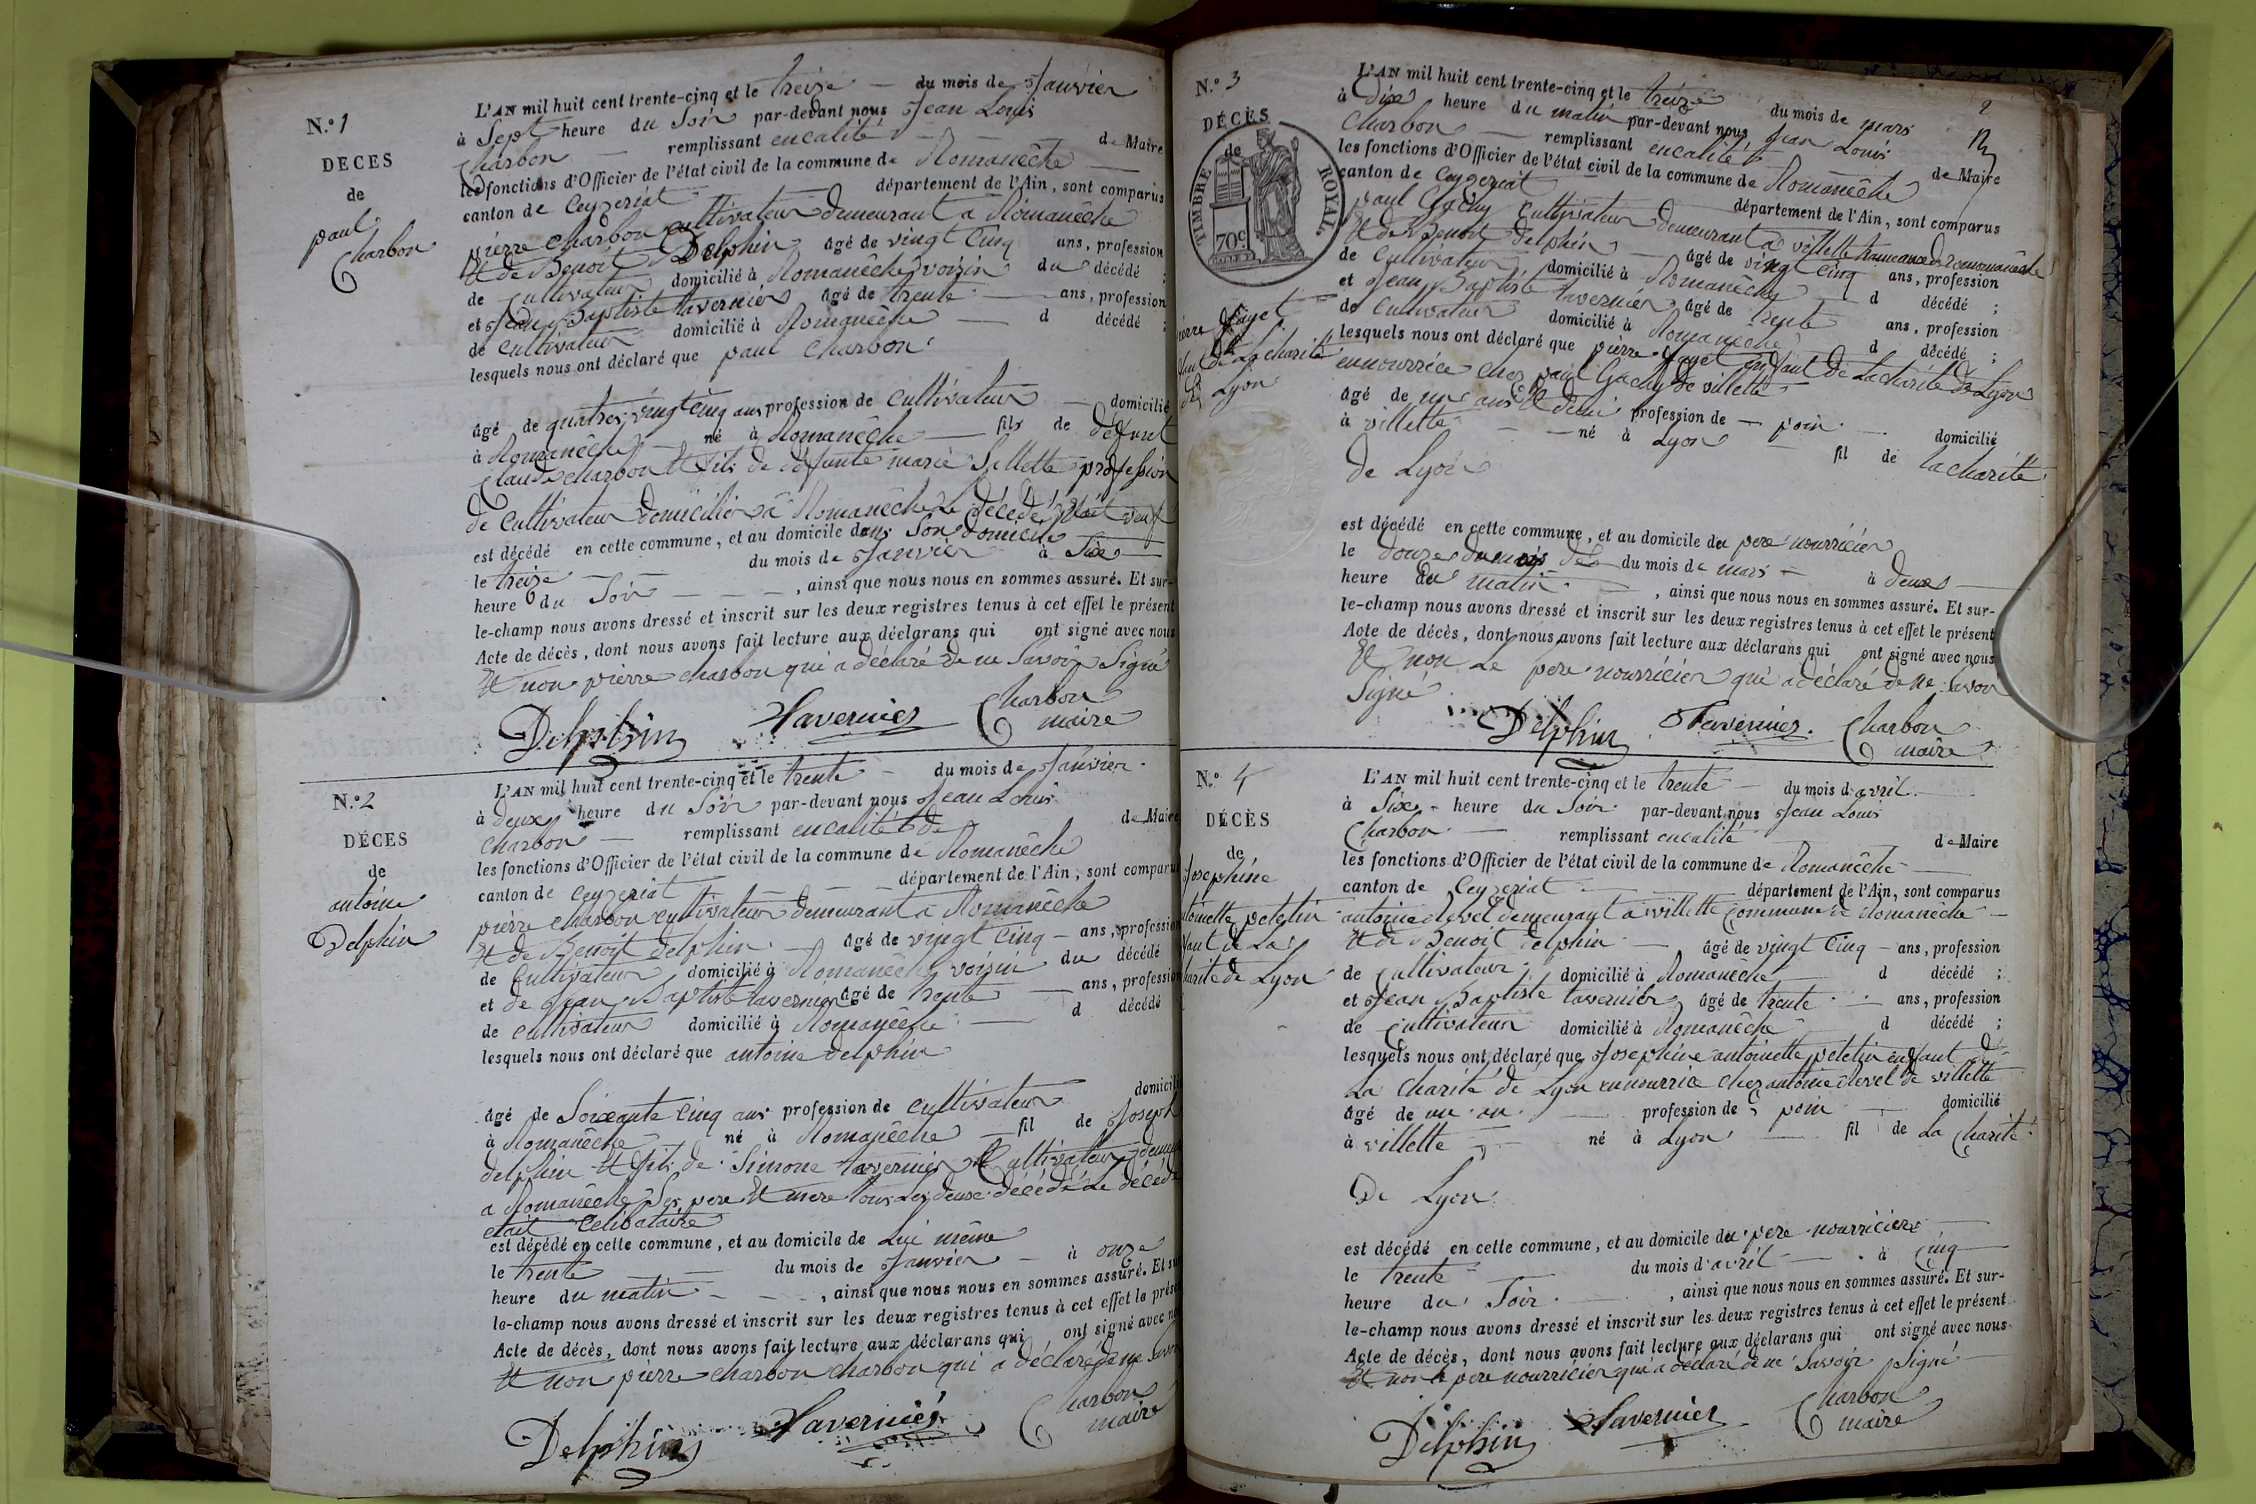 N.o 1
DECES
de
paul
Charbon
L'AN mil huit cent trente-cinq et le treize — du mois de Janvier
à Sept heure du Soir par-devant nous Jean Louis
Charbon — remplissant encalité — de Maire
les fonctions d'Officier de l'état civil de la commune de Romanêche
canton de Ceyzeriat département de l'Ain, sont comparus
pierre charbon cultivateur demeurant a Romanêche
et de Benoit Delphin âgé de vingt Cinq ans, profession
de Cultivateur domicilié à Romanêche voisin du décédé ;
et Jean Baptiste tavernier âgé de trente — ans, profession
de cultivateur domicilié à Romanêche — d décédé ;
lesquels nous ont déclaré que paul Charbon
âgé de quatres vingt Cinq ans profession de Cultivateur — domicilié
à Romanêche né à Romanêche — fils de défunt
Claude charbon et fils de défunte marie Sillette profession
de Cultivateur domicilié à Romanêche Le décédé était veuf
est décédé en cette commune, et au domicile dans Son domicile
le treize du mois de Janvier à Six
heure du Soir — — — , ainsi que nous nous en sommes assuré. Et sur-
le-champ nous avons dressé et inscrit sur les deux registres tenus à cet effet le présent
Acte de décès, dont nous avons fait lecture aux déclarans qui ont signé avec nous
et non pierre charbon qui a déclaré de ne Savoir Signé
Delphin Tavernier Charbon
maire
N.o 2
DÉCES
de
antoine
Delphin
L'AN mil huit cent trente-cinq et le trente — du mois de Janvier
à deux heure du Soir par-devant nous Jean Louis
charbon — remplissant encalité de de Maire
les fonctions d'Officier de l'état civil de la commune de Romanêche
canton de Ceyzeriat département de l'Ain, sont comparus
pierre charbon cultivateur demeurant a Romanêche
et de Benoit delphin — âgé de vingt Cinq — ans, profession
de Cultivateur domicilié à Romanêche voisin du décédé
et de Jean Baptiste tavernier âgé de trente — ans, profession
de cultivateur domicilié à Romanêche — d décédé
lesquels nous ont déclaré que antoine delphin
âgé de Soixante Cinq ans profession de cultivateur domicilié
à Romanêche né à Romanêche — fil de Joseph
delphin et fils de Simone tavernier Cultivateur
a Romanêche Ses pere et mere tous Les deux décédé Le décédé
était Célibataire
est décédé en cette commune, et au domicile de Lui même
le trente du mois de Janvier — à onze
heure du matin — — , ainsi que nous nous en sommes assuré. Et sur
le-champ nous avons dressé et inscrit sur les deux registres tenus à cet effet le présent
Acte de décès, dont nous avons fait lecture aux déclarans qui ont signé avec nous
et non pierre charbon charbon qui a déclaré de ne Savoir
Delphin Tavernier Charbon
maire
2
N.o 3
DÉCÈS
de
TIMBRE ROYAL
70c
pierre fayet
de La charité
de Lyon
L'AN mil huit cent trente-cinq et le treize du mois de mars
à dix heure du matin par-devant nous Jean Louis
Charbon — remplissant encalité de Maire
les fonctions d'Officier de l'état civil de la commune de Romanêche
canton de Ceyzeriat département de l'Ain, sont comparus
paul Gachy Cultivateur demeurant à villette hameau de romanêche
et de Benoit delphin — âgé de vingt Cinq ans, profession
de Cultivateur domicilié à Romanêche — d décédé ;
et Jean Baptiste tavernier âgé de trente ans, profession
de cultivateur domicilié à Romanêche d décédé ;
lesquels nous ont déclaré que pierre fayet enfant de La charité de Lyon
ennourrice chez paul Gachy de villette
âgé de un ans et demi profession de — poin — domicilié
à villette — né à Lyon — fil de la charité
de Lyon
est décédé en cette commune, et au domicile du pere nourricier
le douze du mois de mars — à deux
heure du matin , ainsi que nous nous en sommes assuré. Et sur-
le-champ nous avons dressé et inscrit sur les deux registres tenus à cet effet le présent
Acte de décès, dont nous avons fait lecture aux déclarans qui ont signé avec nous
et non Le pere nourricier qui a déclaré de ne Savoir
Signé
Delphin Tavernier Charbon
maire
N.o 4
DÉCÈS
de
Josephine
antoinette peletin
enfant de La
charité de Lyon
L'AN mil huit cent trente-cinq et le trente — du mois d'avril
à Six — heure du Soir par-devant nous Jean Louis
Charbon — remplissant encalité de Maire
les fonctions d'Officier de l'état civil de la commune de Romanêche —
canton de Ceyzeriat département de l'Ain, sont comparus
antoine clevel demeurant a villette Commune de Romanêche —
et de Benoit delphin — âgé de vingt Cinq — ans, profession
de Cultivateur domicilié à Romanêche d décédé ;
et Jean Baptiste tavernier âgé de trente — ans, profession
de Cultivateur domicilié à Romanêche d décédé ;
lesquels nous ont déclaré que Josephine antoinette peletin enfant de
La charité de Lyon ennourrice chez antoine clevel de villette
âgé de un an — profession de poin — domicilié
à villette né à Lyon — fil de La Charité
De Lyon
est décédé en cette commune, et au domicile du pere nourricier —
le trente du mois d'avril — à Cinq
heure du Soir — , ainsi que nous nous en sommes assuré. Et sur-
le-champ nous avons dressé et inscrit sur les deux registres tenus à cet effet le présent
Acte de décès, dont nous avons fait lecture aux déclarans qui ont signé avec nous
et non le pere nourricier qui a déclaré de ne Savoir Signé
Delphin Tavernier Charbon
maire